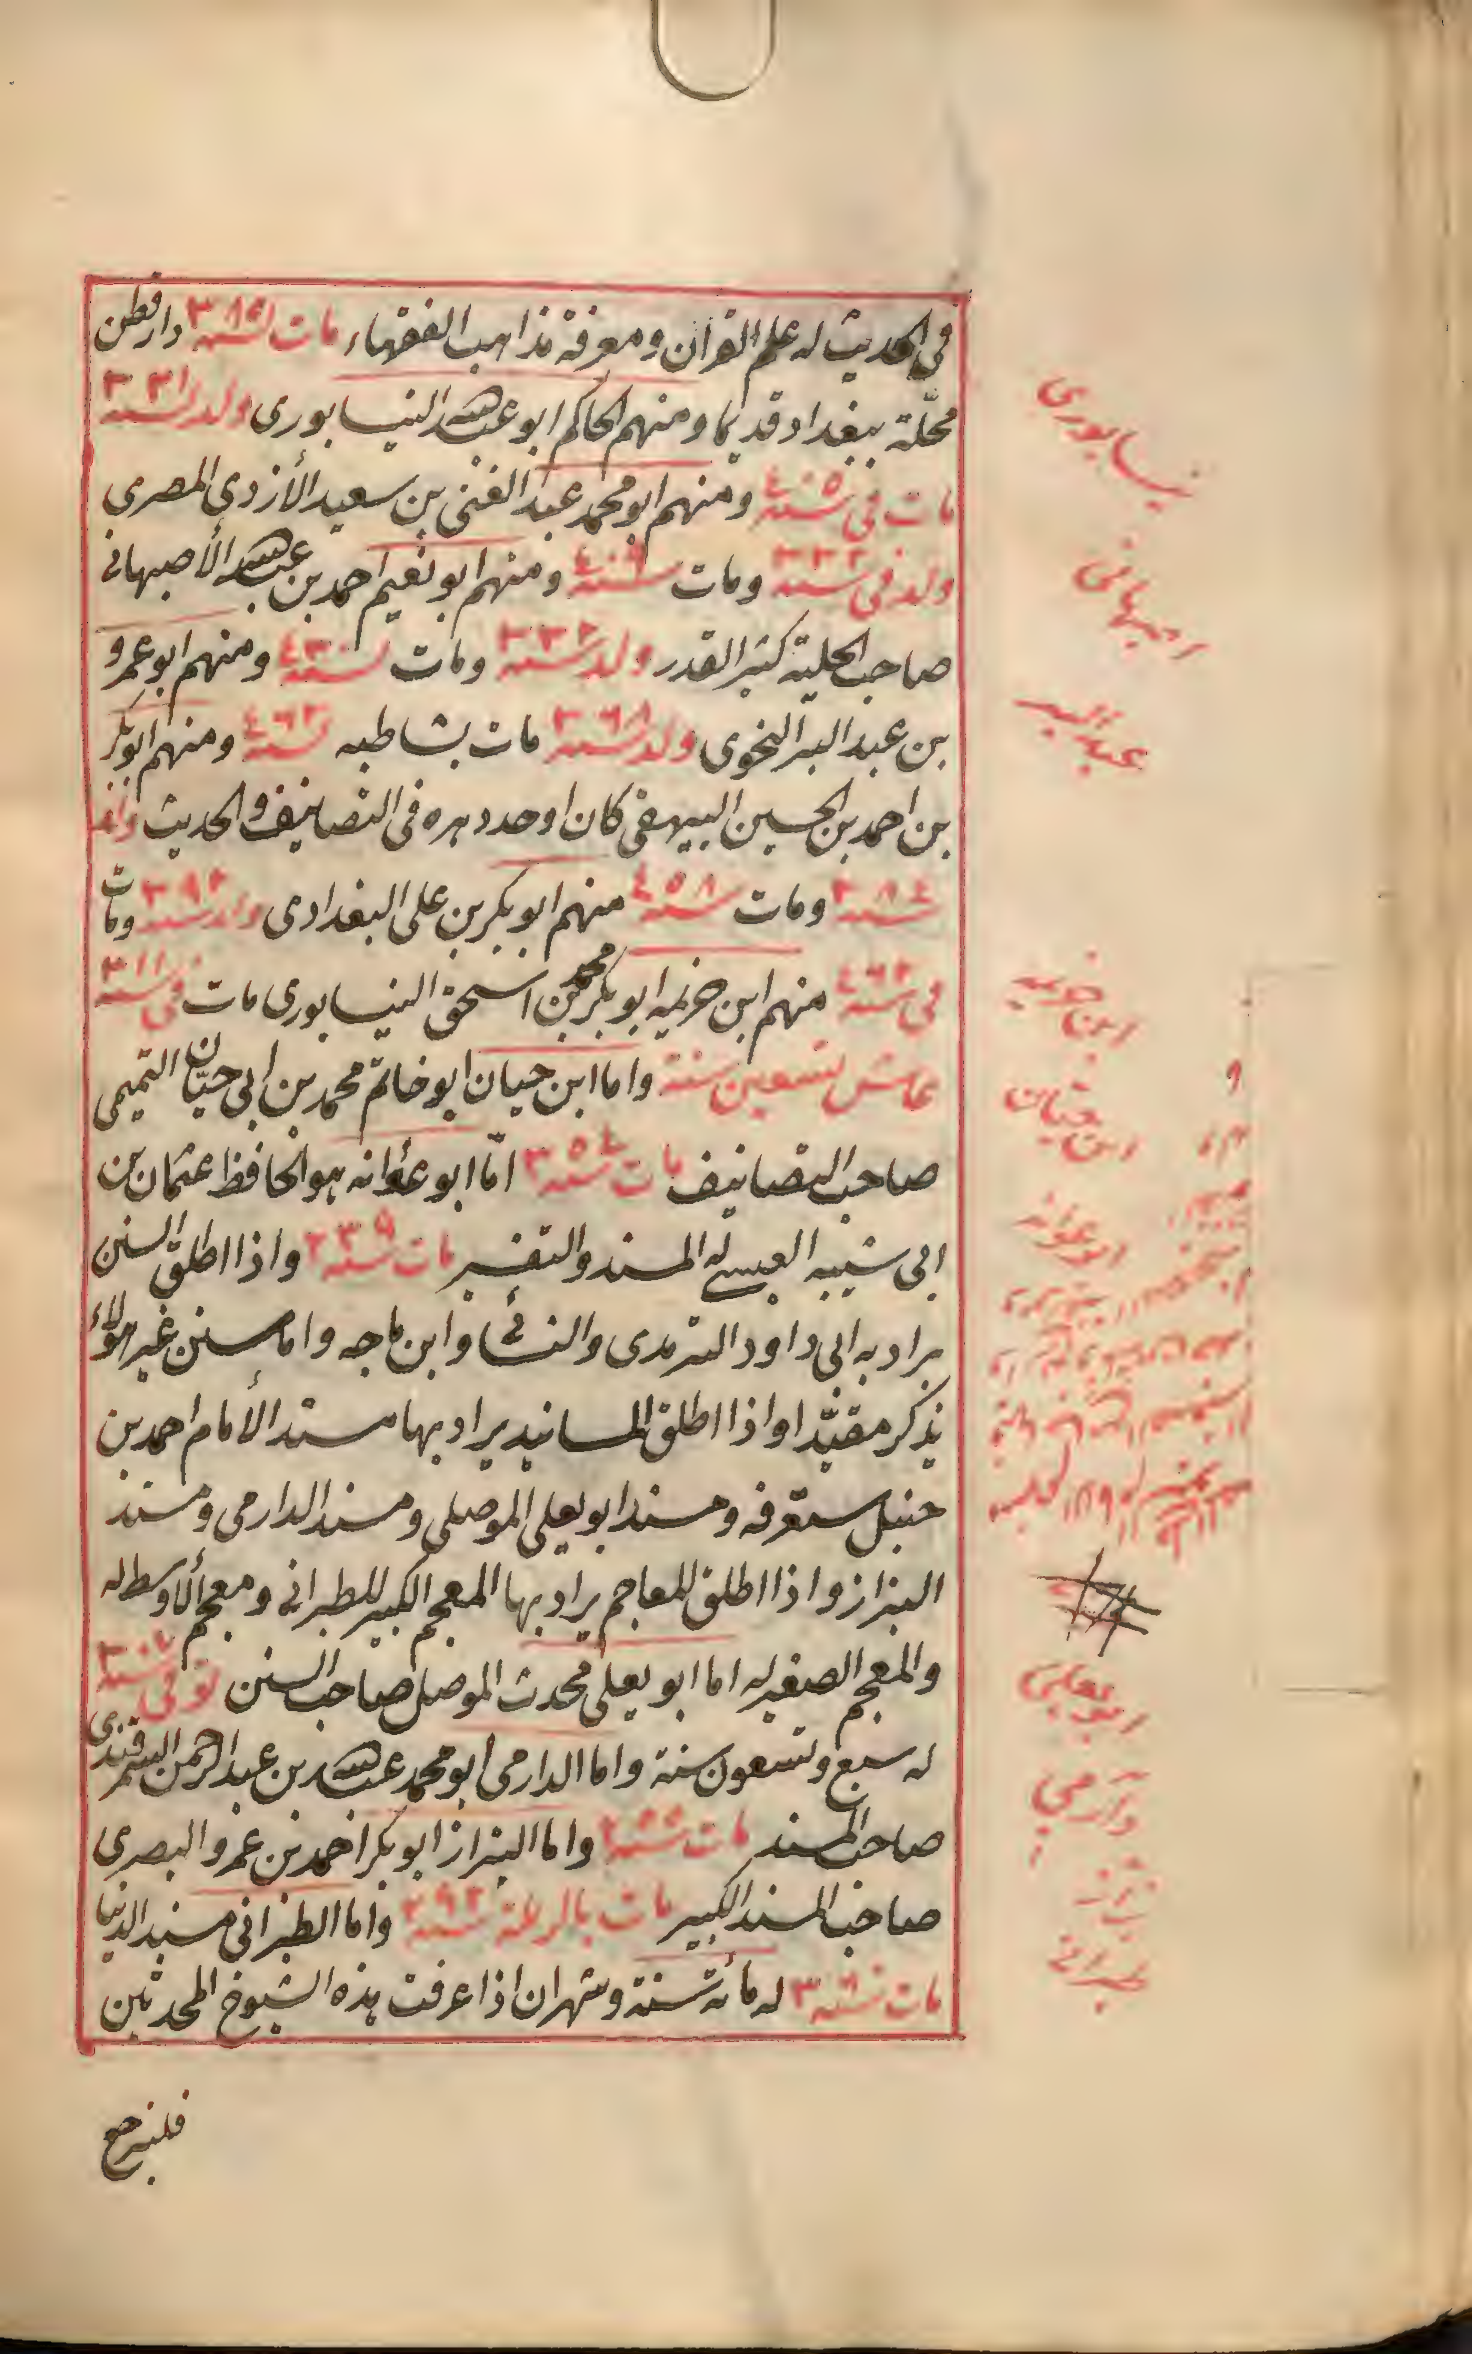 في الحديث له علم القرآن ومعرفة مذاهب الفقهاء مات سنة ٣٨٥ دارقطن
محلّة ببغداد قديما ومنهم الحاكم ابو عبد الله النيسابوري ولد سنة ٣٢١
مات في سنة ٤٠٥ ومنهم ابو محمد عبد الغني بن سعيد الأزدي المصري
ولد في سنة ٣٣٢ ومات سنة ٤٠٩ ومنهم ابو نعيم احمد بن عبد الله الأصبهاني
صاحب الحلية كثير القدر ولد سنة ٣٣٤ ومات سنة ٤٣٠ ومنهم ابو عمرو
بن عبد البر النحوي ولد سنة ٣٦٨ مات بشاطبه سنة ٤٦٣ ومنهم ابو بكر
بن احمد بن الحسين البيهقي كان اوحد دهره في التصانيف والحديث
سنة ٣٨٤ ومات سنة ٤٥٨ منهم ابو بكر بن علي البغدادي ولد سنة ٣٩٢ ومات
في سنة ٤٦٣ منهم ابن خزيمه ابو بكر محمد بن اسحق النيسابوري مات في سنة ٣١١
عاش تسعين سنة واما ابن حيان ابو خاتم محمد بن ابي حيّان التميمي
صاحب التصانيف مات سنة ٣٥٤ امّا ابو عوانه هو الحافظ عثمان بن
ابي شيبه العبسي له المسند والتفسير مات سنة ٢٣٩ واذا اطلق السنن
يراد به ابي داود الترمدي والنسائي وابن ماجه واما سنن غير هؤلاء
يذكر مقيّدا واذا اطلق المسانيد يراد بها مسند الأمام احمد بن
حنبل ستعرفه ومسند ابو يعلي الموصلي ومسند الدارمي ومسند
البزاز واذا اطلق المعاجم يراد بها المعجم الكبير للطبراني ومعجم الأوسط له
والمعجم الصغير له اما ابو يعلي محدث الموصل صاحب السنن توفي سنة ٣٠٧
له سبع وتسعون سنة واما الدارمي ابو محمد عبد الله بن عبد الرحمن السمرقندي
صاحب المسند مات سنة ٢٥٥ واما البزاز ابو بكر احمد بن عمرو البصري
صاحب المسند الكبير مات بالرملة سنة ٢٩٢ واما الطبراني مسند الدنيا
مات سنة ٣٦٠ له مائة سنة وشهران اذا عرفت هذه الشيوخ المحدثين
فلنرجع
نيسابوري
اصبهاني
عبد البر
ابن خزيمه
ابن حيّان
ابو عوانه
ابو يعلي
دارمي
بزاز
طبراني